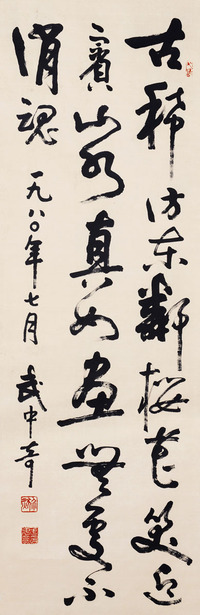 古稀訪東鄰櫻花笑迎
賓山水真如畫無處不
消魂 一九八〇年七月 武中奇